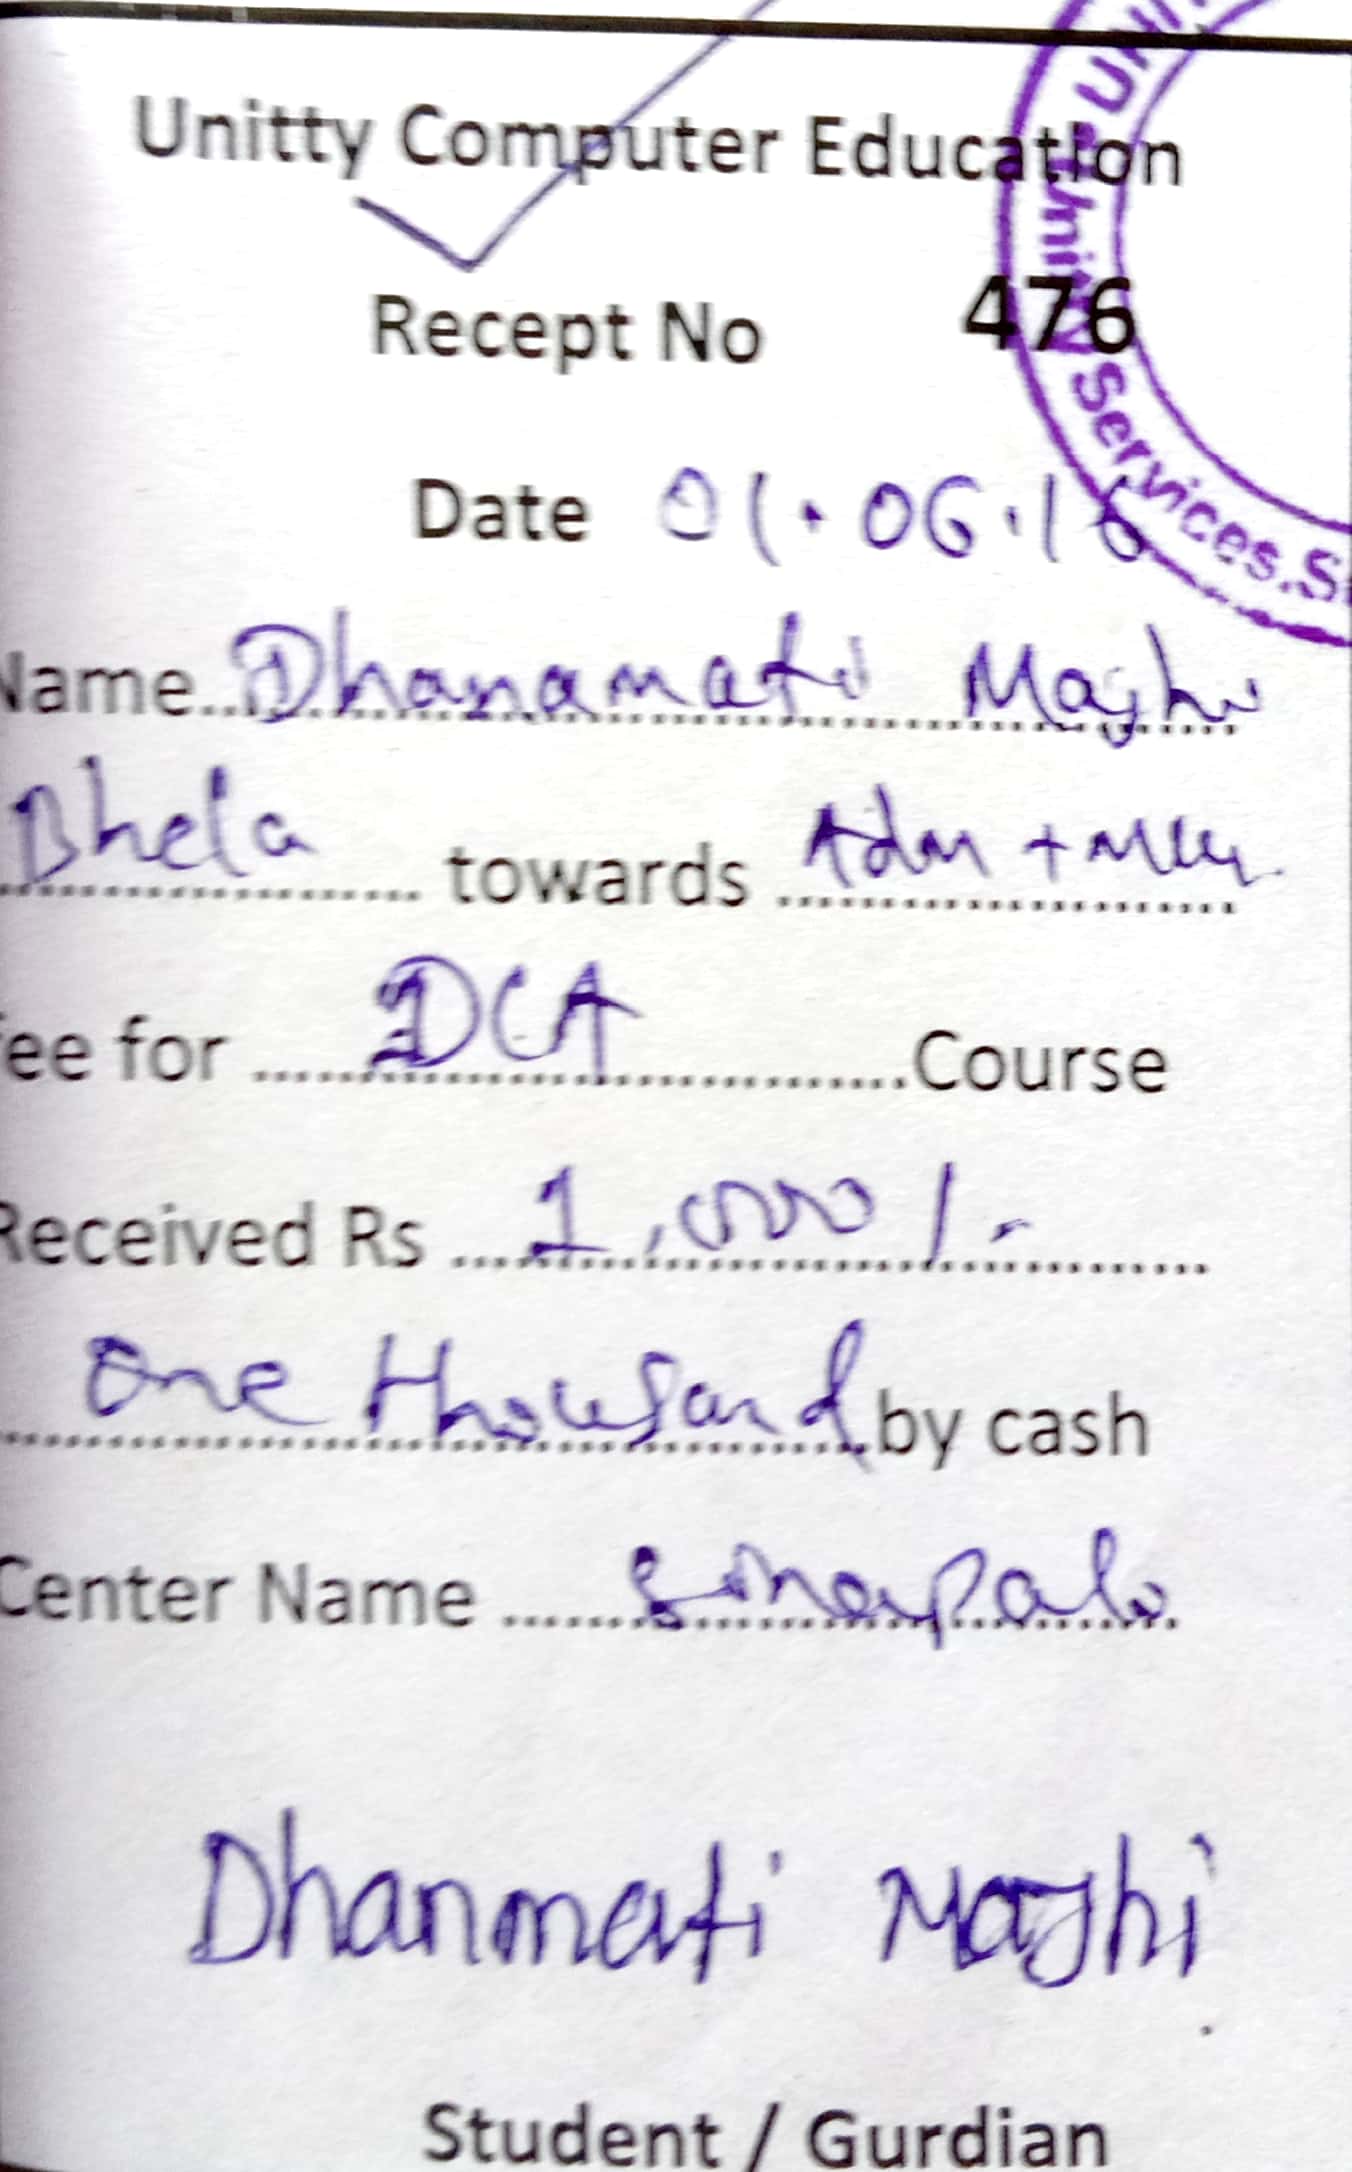 Unitty Computer Education
Recept No 476
Date 01.06.16
Name Dhanamati Majhi
Bhela towards Adm +
ee for DCA Course
Received Rs 1,000/-
One thousand by cash
Center Name Sinapali
Dhanmati Majhi
Student / Gurdian
Unity Services.S